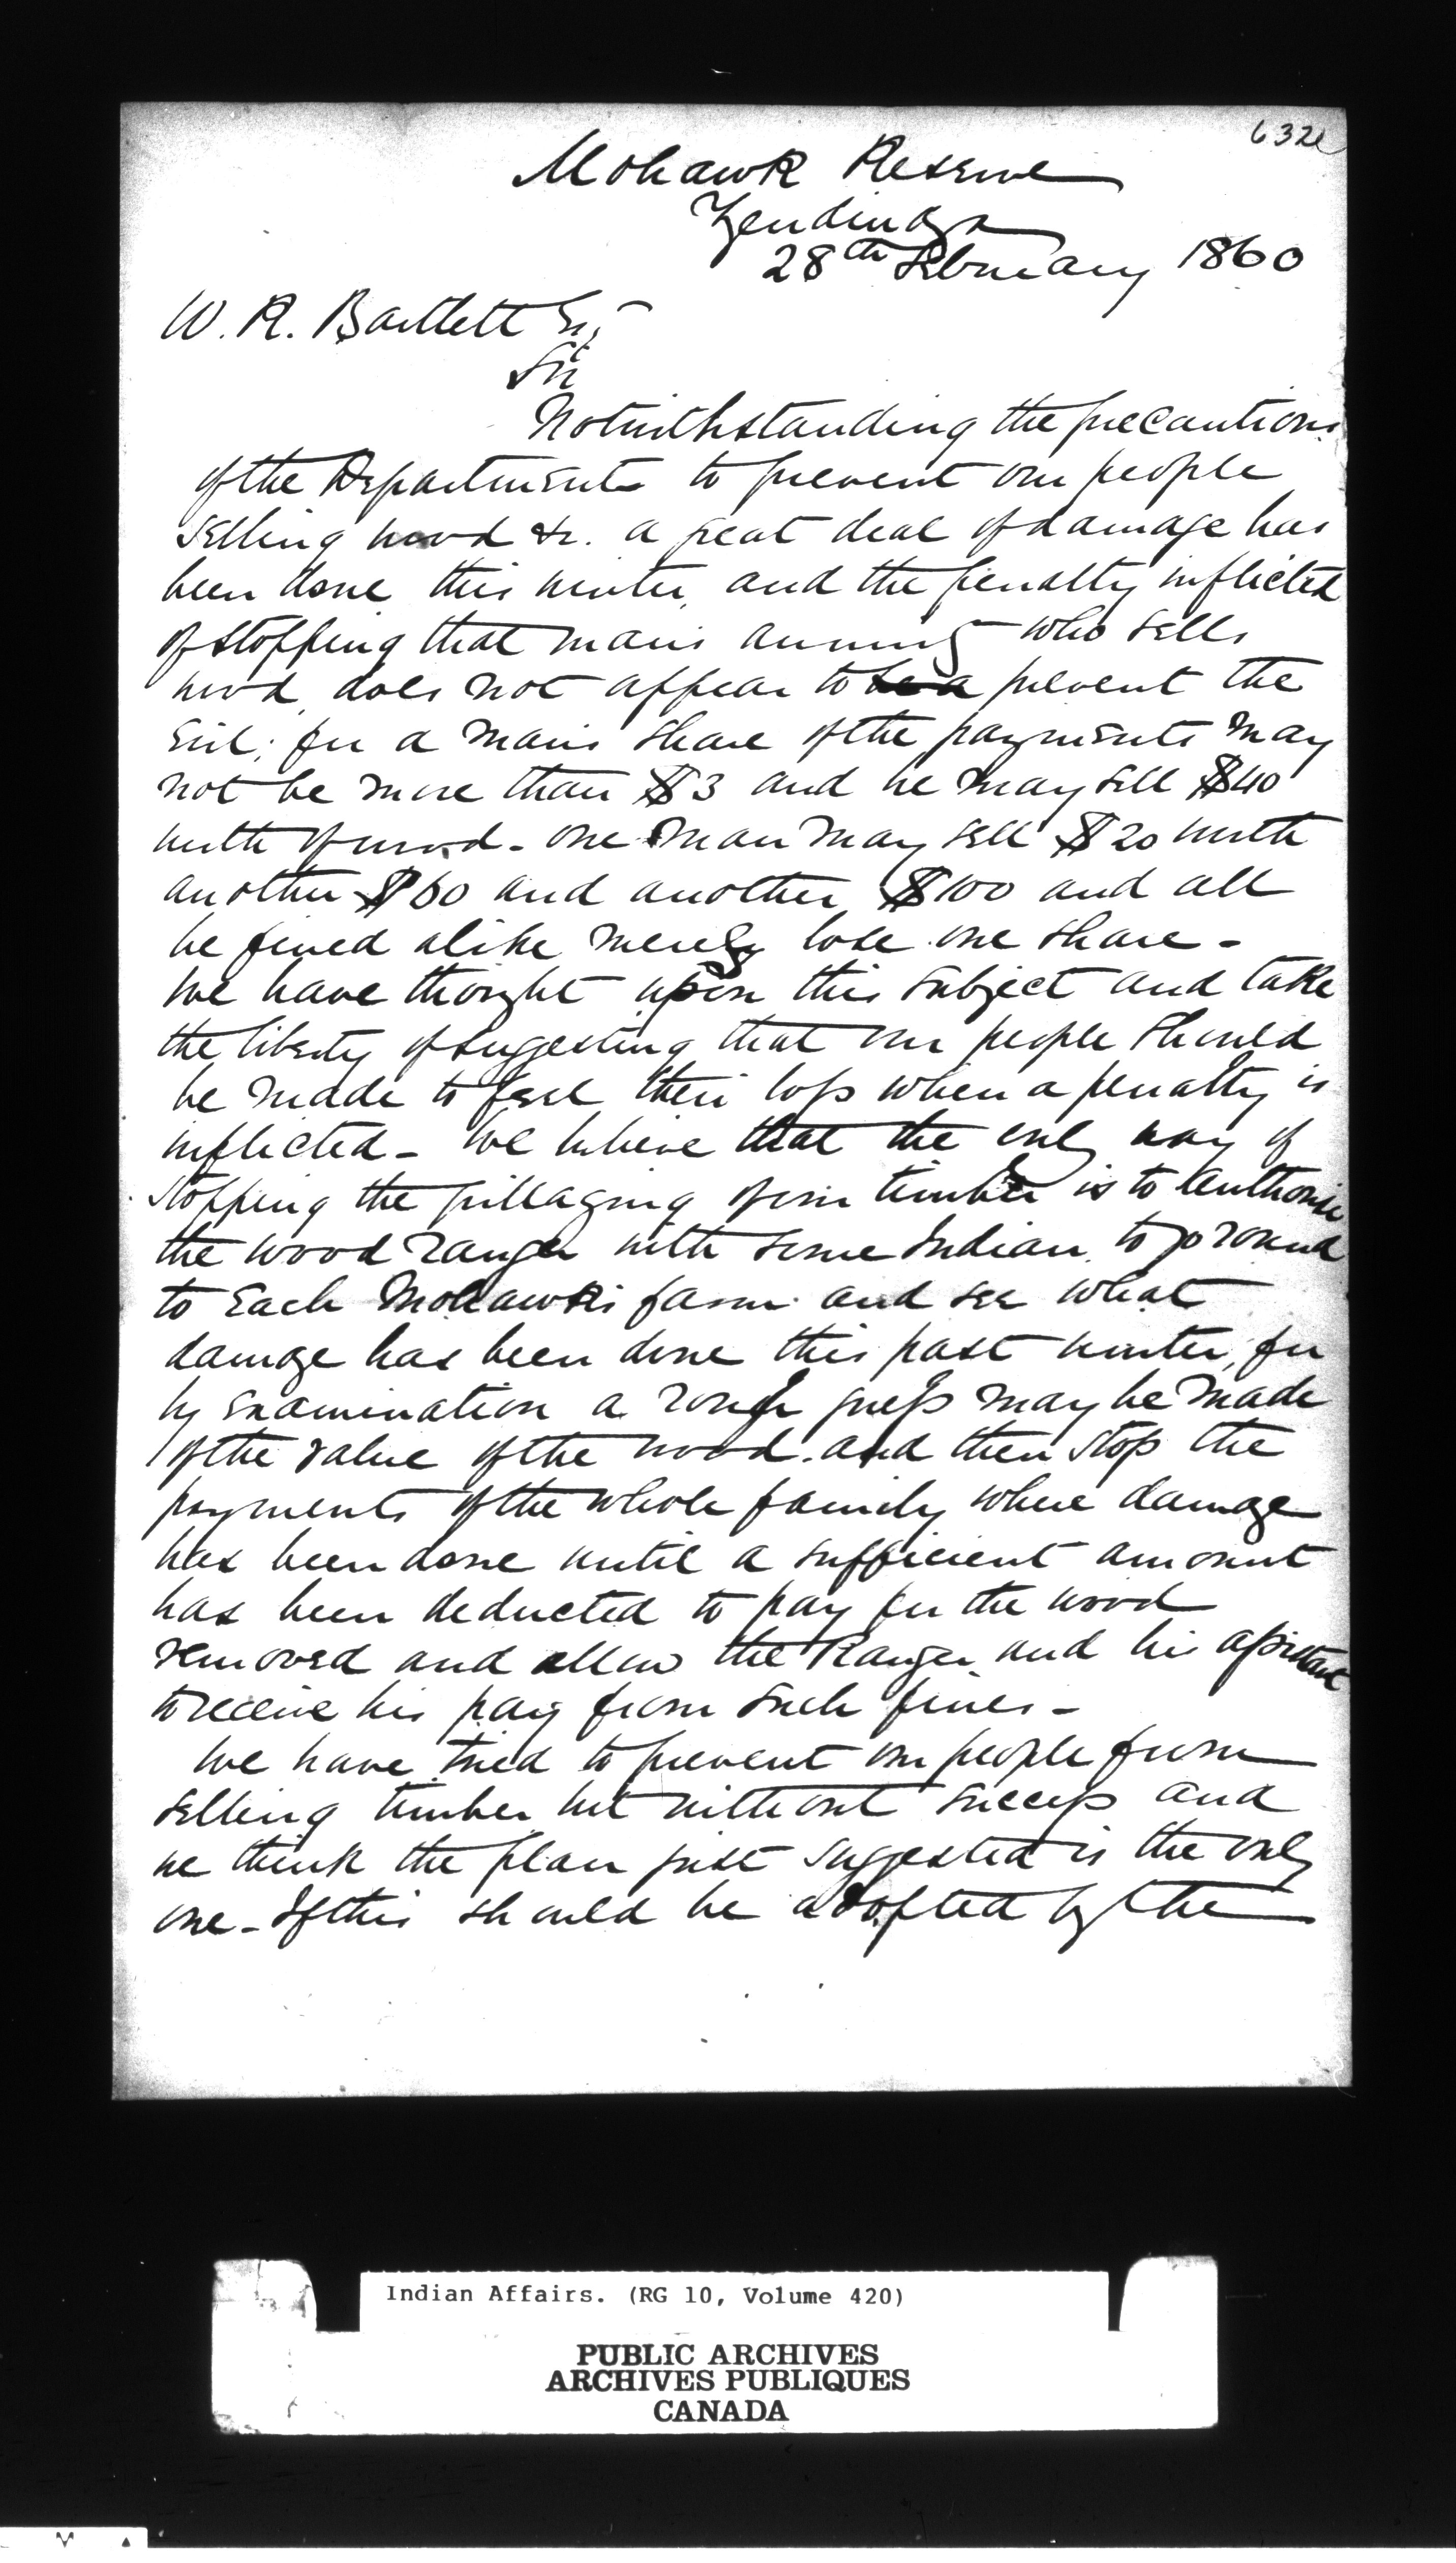 632
Mohawk Reserve
Tyendinaga
28th February 1860
W. R. Bartlett Esq
Sir
Notwithstanding the precautions
of the Department to prevent our people
selling wood &c. a great deal of damage has
been done this winter, and the penalty inflicted
of stopping that mans annuity who sells
wood, does not appear to be a prevent the
evil; for a mans share of the payments may
not be more than $3 and he may sell $40
worth of wood - one man may sell $20 worth
another $60 and another $100 and all
be fined alike merely lose one share -
We have thought upon this subject and take
the liberty of suggesting that our people should
be made to feel their loss when a penalty is
inflicted - We believe that the only way of
stopping the pillaging of our timber is to authorise
the wood ranger with some Indian to go round
to Each Mohawks farm and see what
damage has been done this past winter, for
by Examination a rough guess may be made
of the value of the wood. and then stop the
payments of the whole family where damage
has been done until a sufficient amount
has been deducted to pay for the wood
removed and allow the Ranger and his assistant
to receive his pay from such fines -
We have tried to prevent our people from
selling timber but without success and
we think the plan just suggested is the only
one - If this should be adopted by the
Indian Affairs. (RG 10, Volume 420)
PUBLIC ARCHIVES
ARCHIVES PUBLIQUES
CANADA